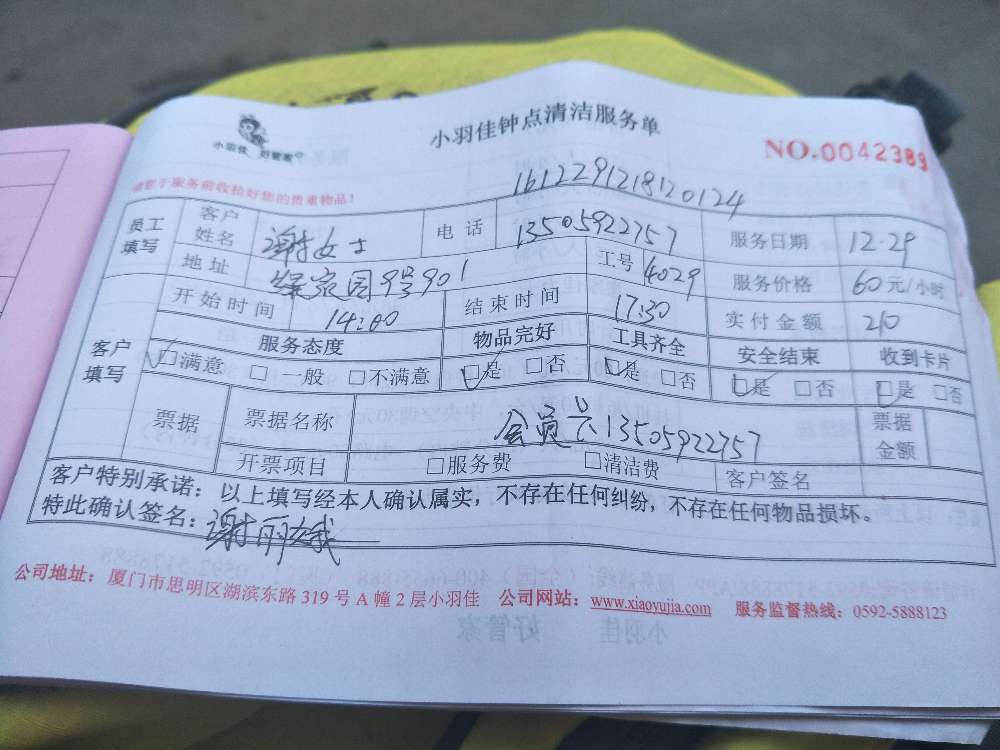 小羽佳钟点清洁服务单
小羽佳 好管家
NO.0042389
请您于服务前收捡好您的贵重物品!
1612291218120124
员工填写 客户姓名 谢女士 电话 13505922757 服务日期 12.29
地址 绿家园9号901 工号 4029 服务价格 60元/小时
开始时间 14:00 结束时间 17:30 实付金额 210
客户填写 服务态度 物品完好 工具齐全 安全结束 收到卡片
□满意 □一般 □不满意 □是 □否 □是 □否 □是 □否 □是 □否
票据 票据名称 会员卡13505922757 票据金额
开票项目 □服务费 □清洁费 客户签名
客户特别承诺:以上填写经本人确认属实,不存在任何纠纷,不存在任何物品损坏。
特此确认签名:谢丽娥
公司地址:厦门市思明区湖滨东路 319 号 A 幢 2 层小羽佳 公司网站:www.xiaoyujia.com 服务监督热线:0592-5888123